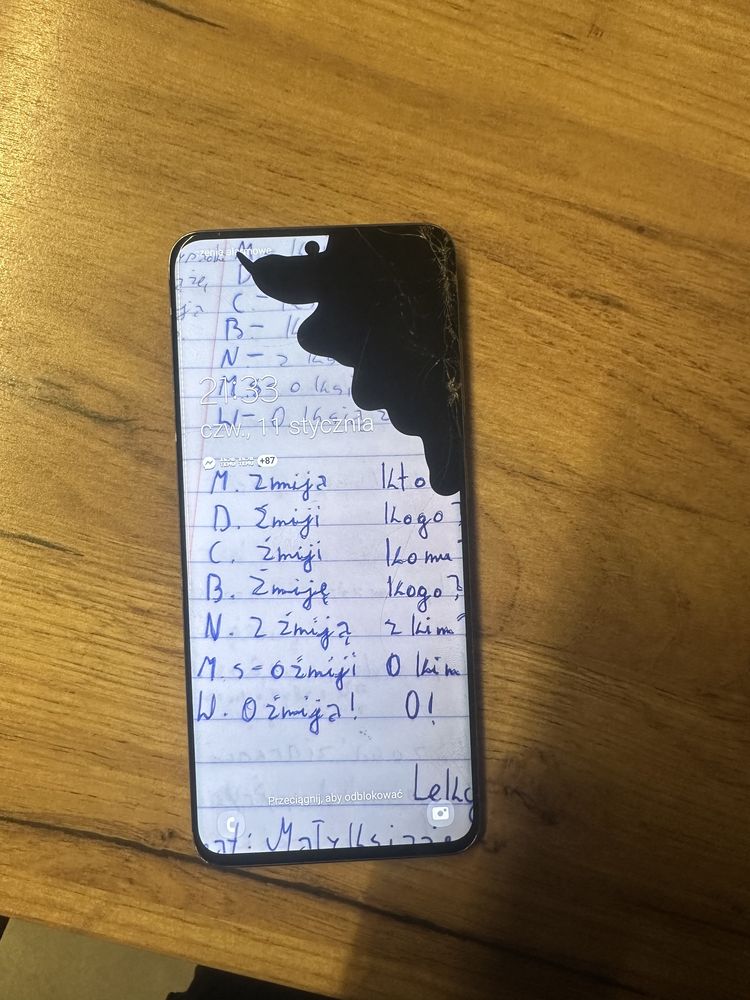 M
D
C. -
B -
N - z
21:33
M. s - o
W - O
czw., 11 stycznia
+87
M. żmija kto
D. Żmiji kogo?
C. żmiji komu
B. Żmiję kogo?
N. z żmiją z kim
M. s - o żmiji O kim
W. O żmija! O!
Przeciągnij, aby odblokować
at: Mały Książę